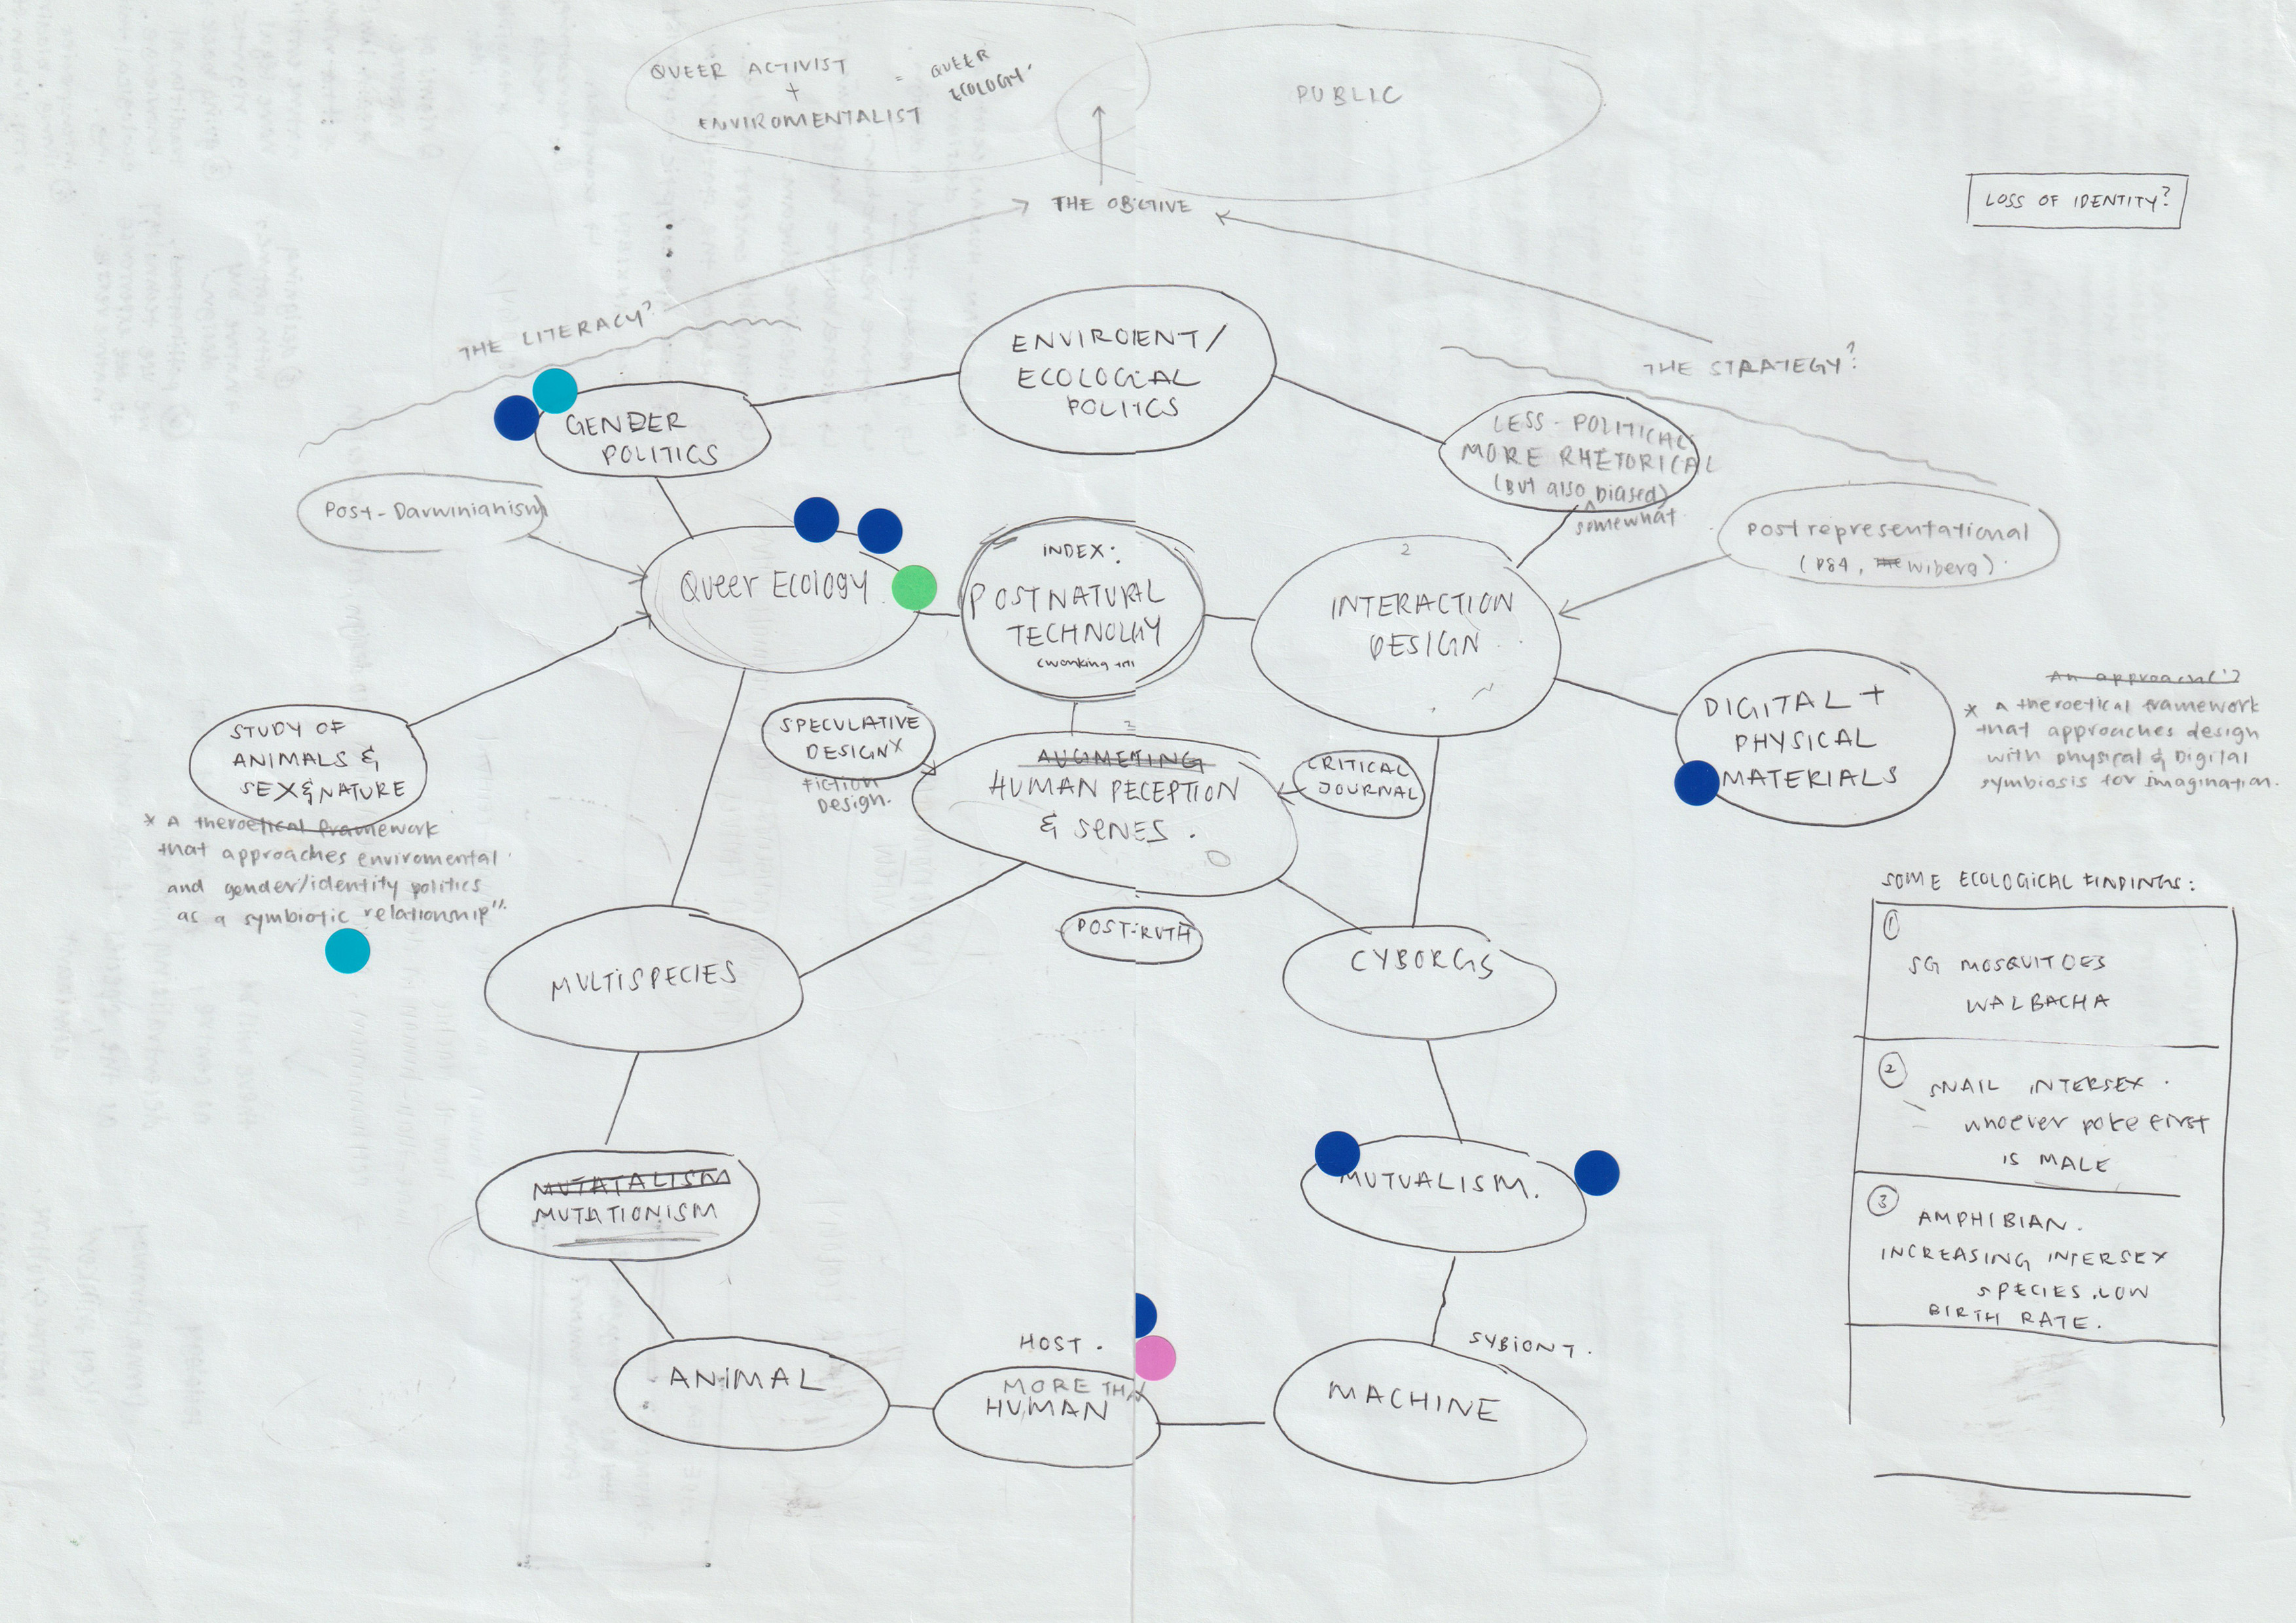 QUEER ACTIVIST
+
ENVIROMENTALIST
= QUEER
ECOLOGY.
PUBLIC
THE OBCTIVE
LOSS OF IDENTITY?
THE LITERACY?
THE STRATEGY?
ENVIROIENT/
ECOLOGIAL
POLITCS
GENDER
POLITICS
LESS - POLITICAL
MORE RHETORICAL
(BUT also biased)
somewhat
Post-Darwinianism
Postrepresentational
Wiberg).
Queer Ecology
INDEX:
POSTNATURAL
TECHNOLGY
2
INTERACTION
DESIGN
STUDY OF
ANIMALS &
SEX&NATURE
* A theroetical framework
that approaches enviromental
and gender/identity politics
as a symbiotic relationship"
SPECULATIVE
DESIGN X
FICTION
DESIGN.
2
AUGMETING
HUMAN PECEPTION
& SENES.
CRITICAL
JOURNAL
POST-RUTH
DIGITAL +
PHYSICAL
MATERIALS
An approach
* A theroetical framework
that approaches design
with physical & Digital
symbiosis for imagination.
MULTISPECIES
CYBORGS
SOME ECOLOGICAL FINDINGS:
1
SG MOSQUITOES
WALBACHA
2
SNAIL INTERSEX.
whoever poke first
IS MALE
3
AMPHIBIAN.
INCREASING INTERSEX
SPECIES.LOW
BIRTH RATE.
MUTATALISM
MUTATIONISM
MUTUALISM.
ANIMAL
HOST.
MORE THA
HUMAN
SYBIONT.
MACHINE